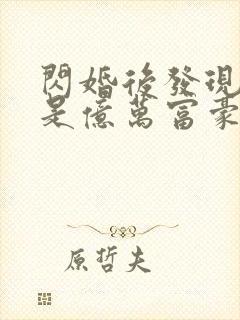 閃婚後發現
是億萬富豪
原哲夫